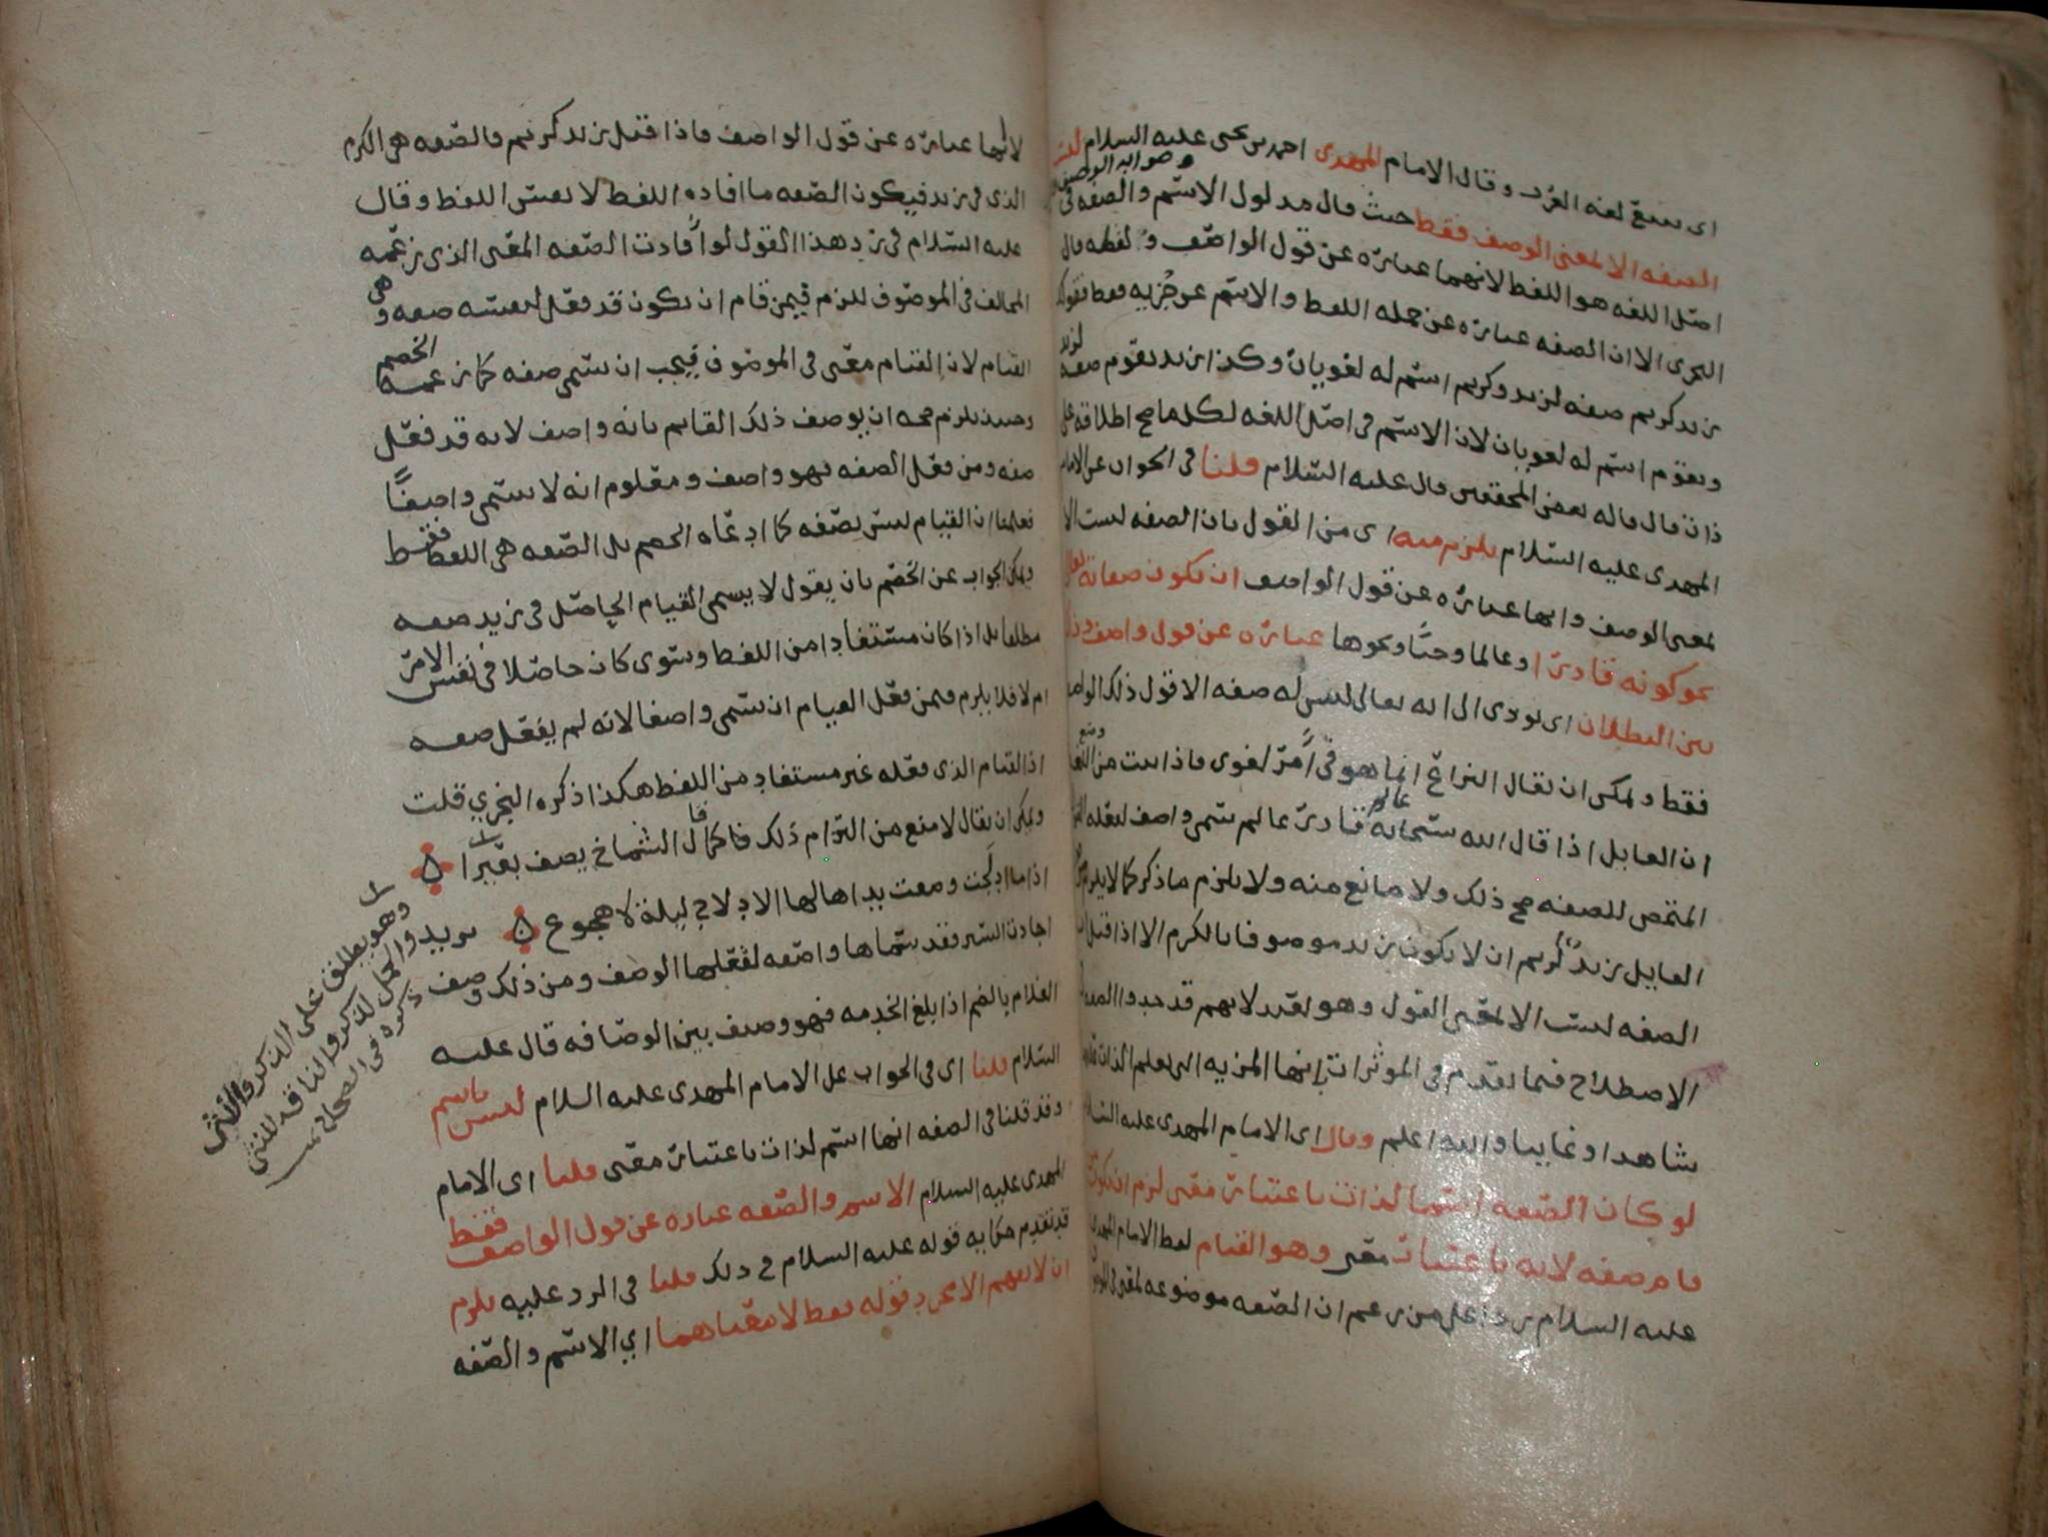 اى تتبع لغه العرب وقال الامام المهدى احمد بن يحيى عليه السلام ليست
وصوابه الوصف
الصفه الا لمعنى الوصف فقط حيث قال مدلول الاسم والصفه فى
اصل اللغه هو اللفظ لانهما عباره عن قول الواصف ولفظه قال
النجرى الا ان الصفه عباره عن جمله اللفظ والاسم عن جزيه فقط فقولك
زيد كريم صفه لزيد وكريم اسم له لغويان وكذا زيد يقوم صفه لزيد
ويقوم اسم له لغويان لان الاسم فى اصل اللغه لكلما صح اطلاقه على
ذات قال قاله بعض المحققين قال عليه السلام قلنا فى الجواب على الامام
المهدى عليه السلام يلزم منه اى من القول بان الصفه ليست الا
لمعنى الوصف وانها عباره عن قول الواصف ان تكون صفاته تعالى
نحو كونه قادرا وعالما وحيا ونحوها عباره عن قول واصف وذلك
بين البطلان اى يودى الى انه تعالى ليس له صفه الا قول ذلك الواصف
فقط ويمكن ان يقال النزاع انما هو فى امر لغوى فاذا ثبت من وضع اللغه
ان القايل اذا قال الله سبحانه عالم قادر عالم سمى واصف لفعله
المتمحض للصفه صح ذلك ولا مانع منه ولا يلزم ما ذكر كما لا يلزم من
القايل زيد كريم ان لا يكون زيد موصوفا بالكرم الا اذا قيل ان
الصفه ليست الا لمعنى القول وهو بعيد لانهم قد حدوا الصفه
الاصطلاح فيما تقدم فى الموثرات بانها المزيه التى يعلم الذات عليها
شاهدا وغايبا والله اعلم وقال اى الامام المهدى عليه السلام
لو كان الصفه اسما لذات باعتبار معنى لزم ان يكون
قام صفه لانه باعتبار معنى وهو القيام لفظ الامام المهدى
عليه السلام ردا على من زعم ان الصفه موضوعه لمعنى فى الموصوف
لانها عباره عن قول الواصف فاذا قيل زيد كريم فالصفه هى الكرم
الذى فى زيد فيكون الصفه ما افاده اللفظ لا نفس اللفظ وقال
عليه السلام فى رد هذا القول لو افادت الصفه المعنى الذى زعمه
المخالف فى الموصوف للزم فيمن قام ان يكون قد فعل لنفسه صفه وهى
القيام لان القيام معنى فى الموصوف فيجب ان يسمى صفه كما زعمه الخصم
وحينئذ يلزم صحه ان يوصف ذلك القايم بانه واصف لانه قد فعل
صفه ومن فعل الصفه فهو واصف ومعلوم انه لا يسمى واصفا
فعلمنا ان القيام ليس بصفه كما ادعاه الخصم بل الصفه هى اللفظ فقط
ويمكن الجواب عن الخصم بان يقول لا يسمى القيام الحاصل فى زيد صفه
مطلقا بل اذا كان مستفادا من اللفظ وسوى كان حاصلا فى نفس الامر
ام لا فلا يلزم فيمن فعل القيام ان يسمى واصفا لانه لم يفعل صفه
اذ القيام الذى فعله غير مستفاد من اللفظ هكذا ذكره النجري قلت
ويمكن ان يقال لا منع من التزام ذلك فكما قال الشماخ يصف بعيرا
اذا ما ادلجت وصفت يداها لها الادلاج ليلة لا هجوع
يريد اجادت السير فقد سماها واصفه لفعلها الوصف ومن ذلك وصف
الغلام بالضم اذا بلغ الخدمه فهو وصيف بين الوصافه قال عليه
السلام قلنا اى فى الجواب على الامام المهدى عليه السلام ليس باسم
وقد قلنا فى الصفه انها اسم لذات باعتبار معنى قلنا اى الامام
المهدى عليه السلام الاسم والصفه عباره عن قول الواصف فقط
قد تقدم حكايه قوله عليه السلام فى ذلك قلنا فى الرد عليه يلزم
ان لا يفهم الا مجرد قوله فقط لا معناهما اي الاسم والصفه
وهو يطلق على الذكر والانثى
والجمل للذكر والناقه للانثى
ذكره فى الصحاح